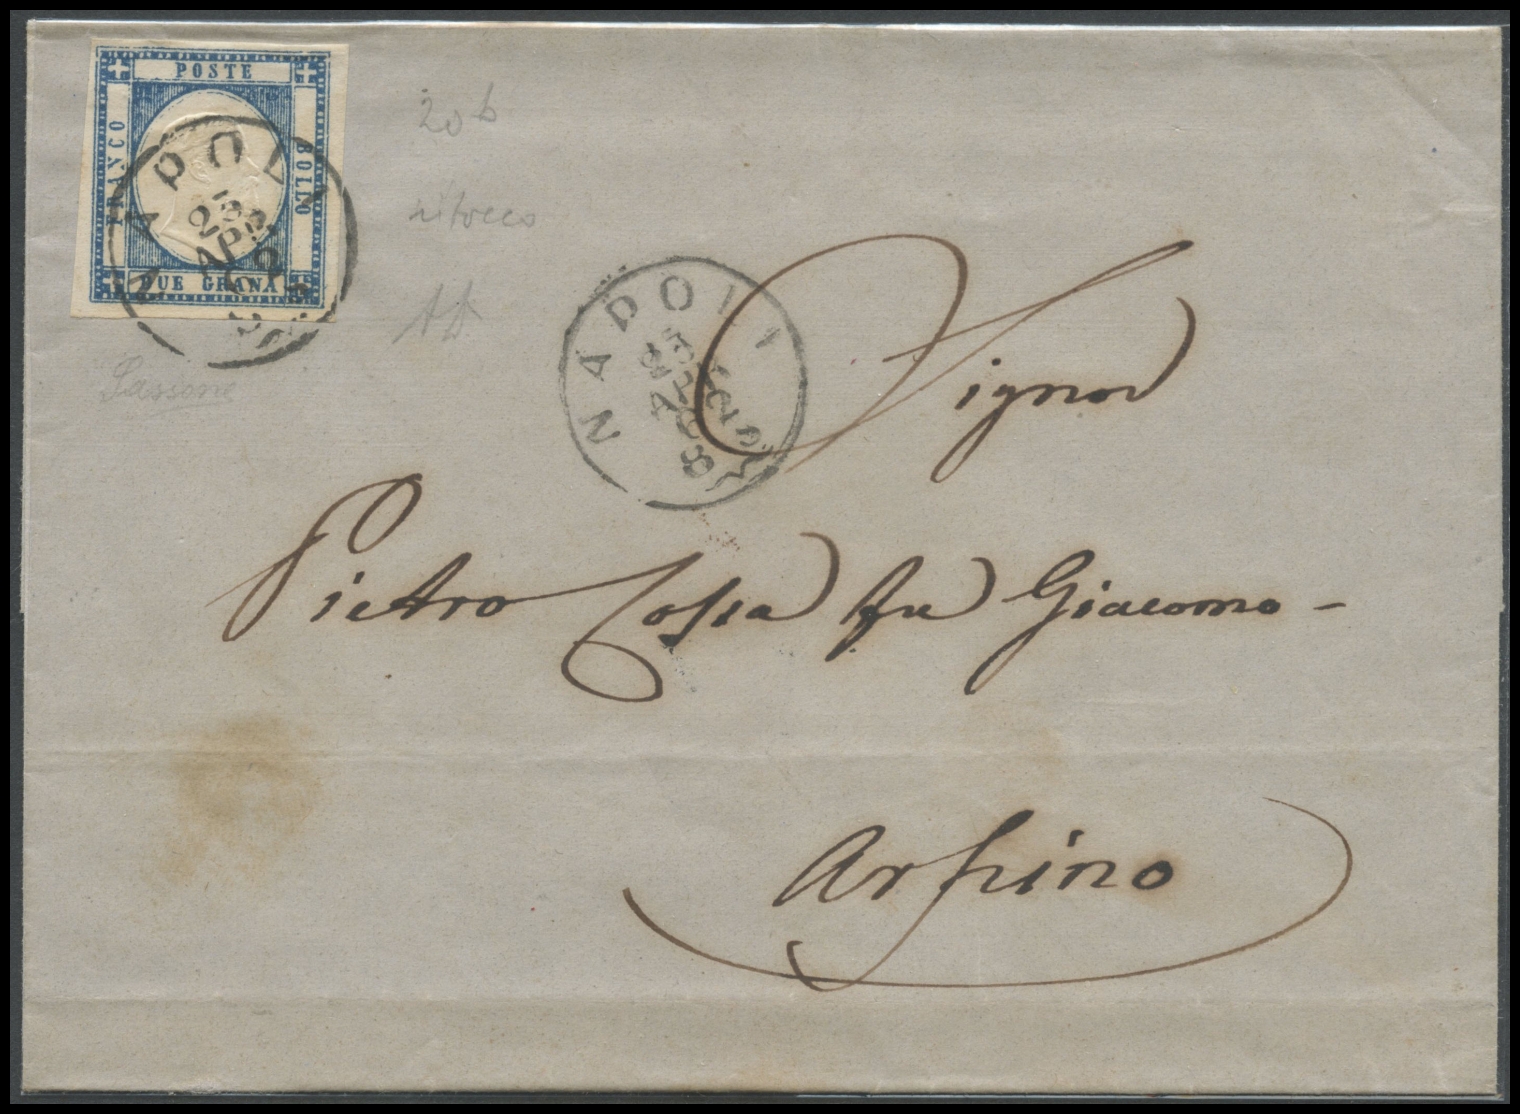 POSTE
FRANCO
BOLLO
DUE GRANA
NAPOLI
23
APR
20 b
ritocco
Sassone
NAPOLI
Signor
Pietro Cossa fu Giacomo -
Arpino